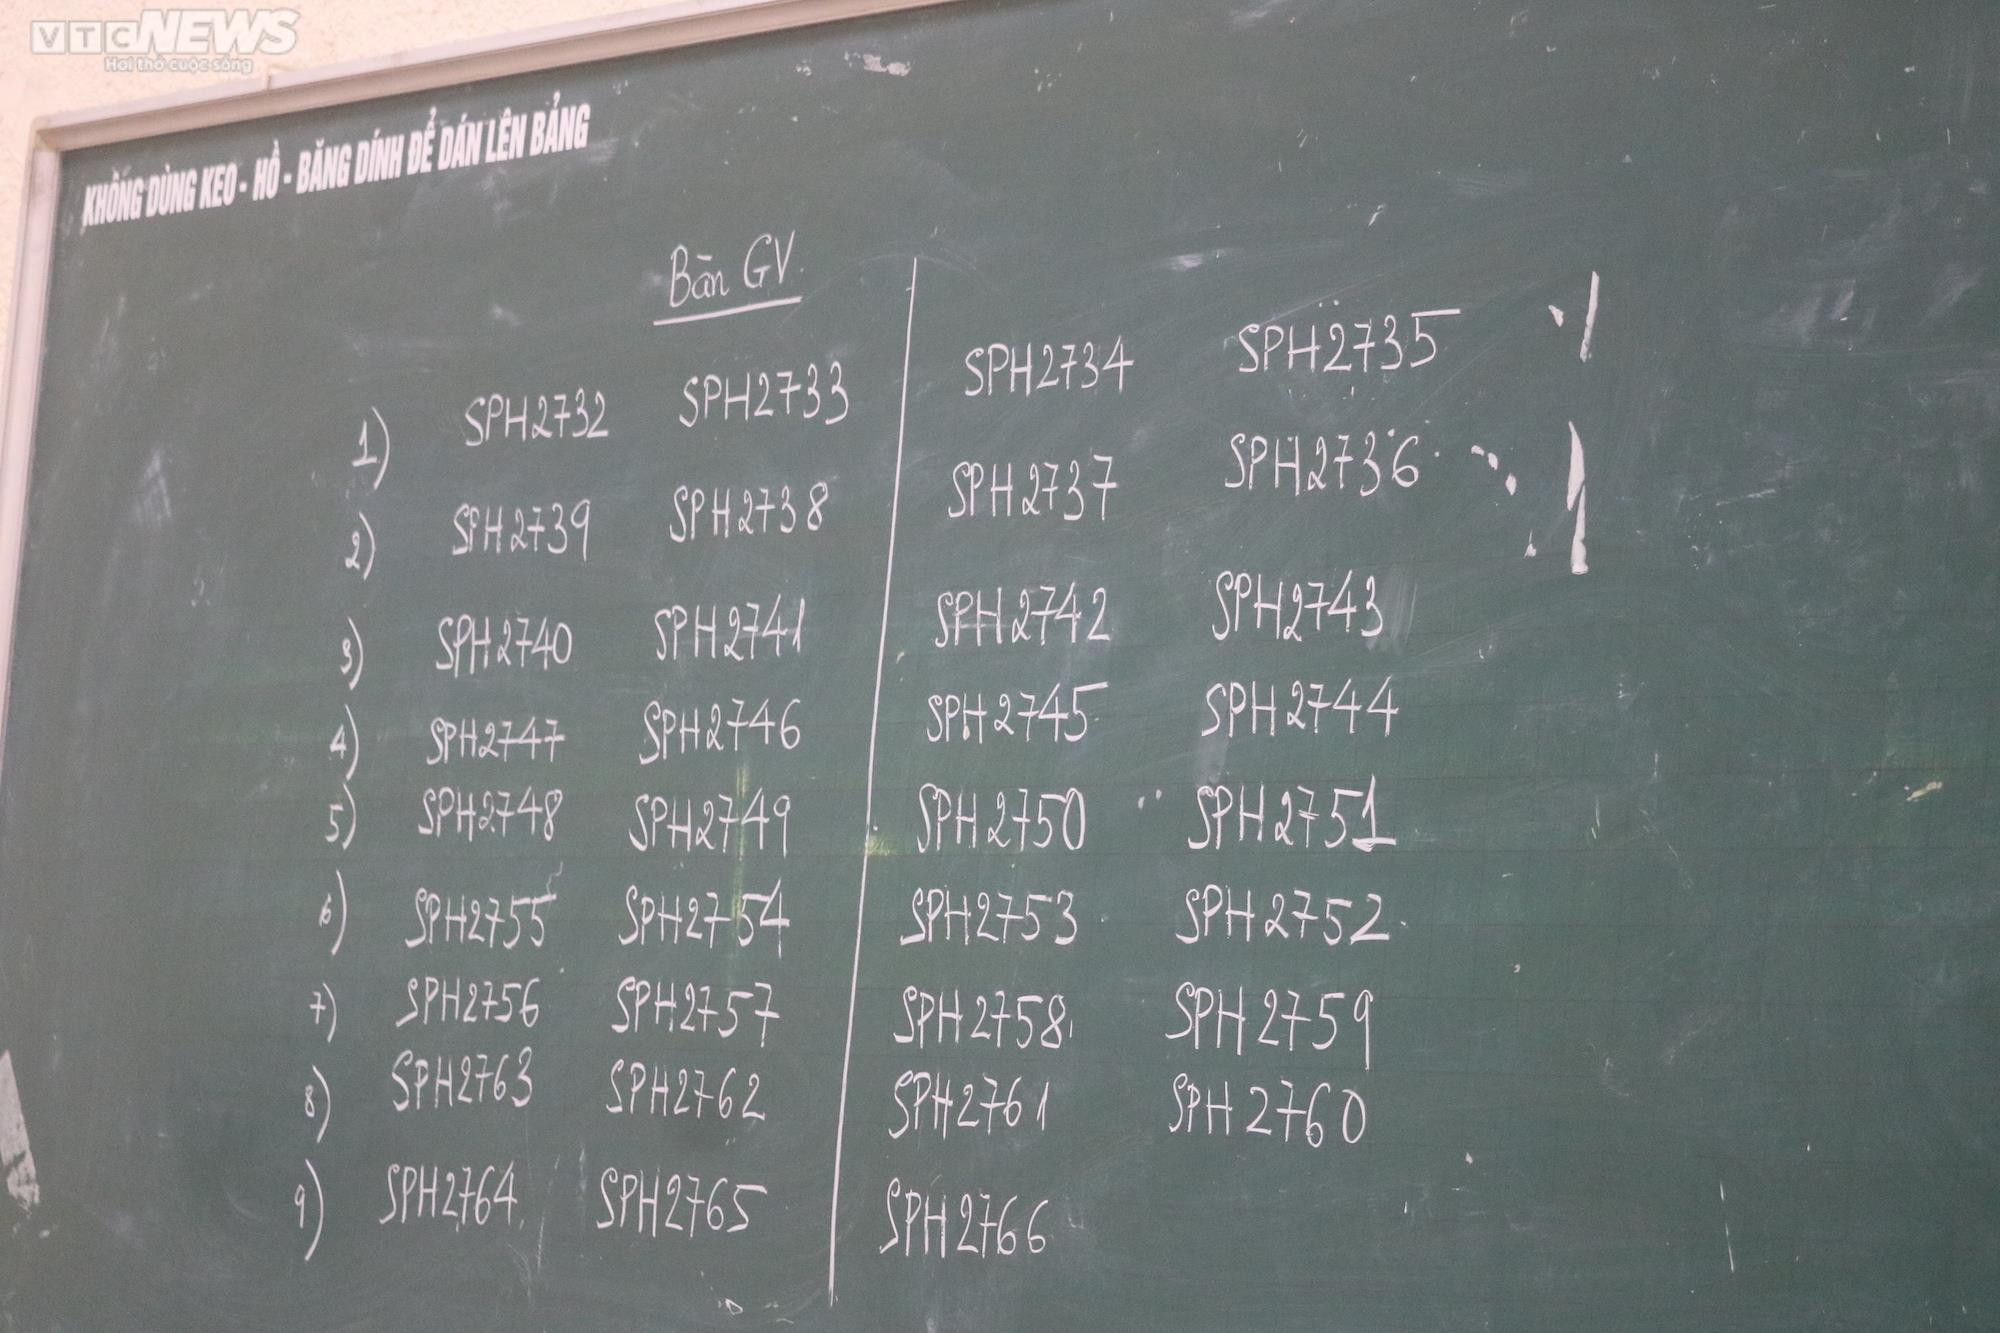 VTC NEWS
Hơi thở cuộc sống
KHÔNG DÙNG KEO - HỒ - BĂNG DÍNH ĐỂ DÁN LÊN BẢNG
Bàn GV.
1) SPH2732 SPH2733 SPH2734 SPH2735
2) SPH2739 SPH2738 SPH2737 SPH2736
3) SPH2740 SPH2741 SPH2742 SPH2743
4) SPH2747 SPH2746 SPH2745 SPH2744
5) SPH2748 SPH2749 SPH2750 SPH2751
6) SPH2755 SPH2754 SPH2753 SPH2752
7) SPH2756 SPH2757 SPH2758 SPH2759
8) SPH2763 SPH2762 SPH2761 SPH2760
9) SPH2764 SPH2765 SPH2766